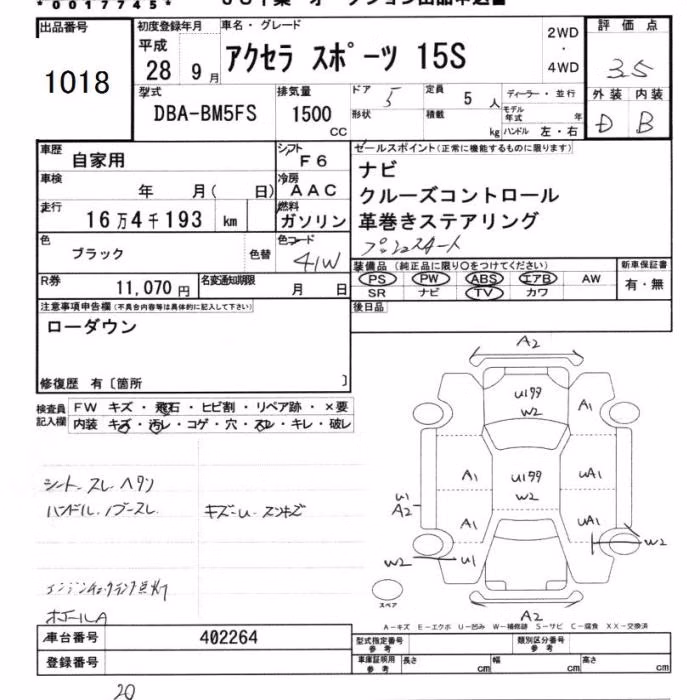 *0017745*
出品番号
1018
初度登録年月
平成
28 9月
車名・グレード
アクセラ スポーツ 15S
2WD
・
4WD
評価点
3.5
外装 内装
D B
型式
DBA-BM5FS
排気量
1500
CC
ドア
5
定員
5人
形状
積載
kg
ディーラー・並行
モデル年式 年
ハンドル 左・右
車歴
自家用
シフト
F6
車検
年 月( 日)
冷房
AAC
走行
16万4千193 km
燃料
ガソリン
色
ブラック
色替
色コード
41W
R券
11,070円
名変通知期限
月 日
セールスポイント(正常に機能するものに限ります)
ナビ
クルーズコントロール
革巻きステアリング
プッシュスタート
装備品(純正品に限り○をつけてください)
PS PW ABS エアB AW
SR ナビ TV カワ
新車保証書
有・無
後日品
注意事項申告欄(不具合内容等は具体的に記入して下さい)
ローダウン
修復歴 有〔箇所 〕
検査員記入欄
FW キズ・飛石・ヒビ割・リペア跡・×要
内装 キズ・汚レ・コゲ・穴・スレ・キレ・破レ
シート スレ ヘタリ
ハンドル.ノブスレ
キズ・U・スンキズ
エンジンチェックランプ点灯
ホイールA
A2
U199
W2
A1
A1
U199
W2
UA1
U1
A2
A1
UA1
W2
U1
W2
スペア
A2
A-キズ E-エクボ U-凹み W-補修跡 S-サビ C-腐食 XX-交換済
車台番号
402264
登録番号
型式指定番号
参考
類別区分番号
参考
車庫証明用
参考
長さ cm
幅 cm
高さ cm
20